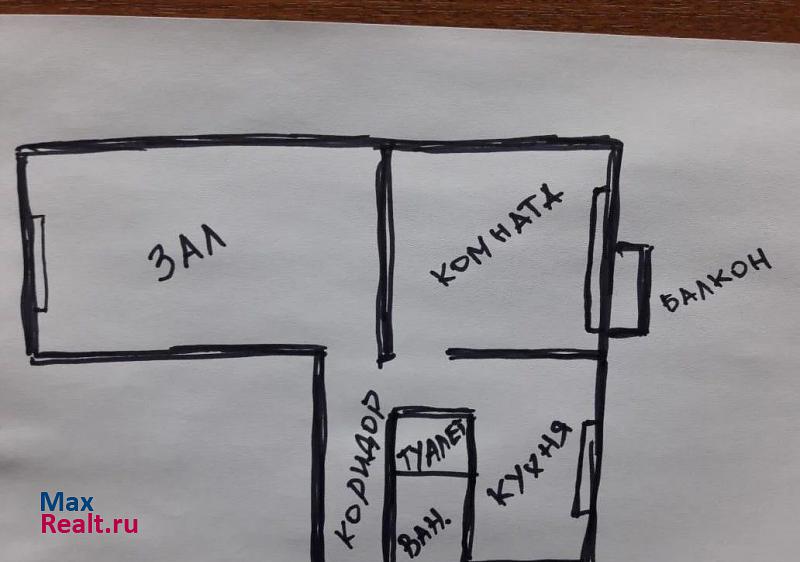 ЗАЛ
КОМНАТА
БАЛКОН
КОРИДОР
ТУАЛЕТ
КУХНЯ
ВАН.
Max
Realt.ru